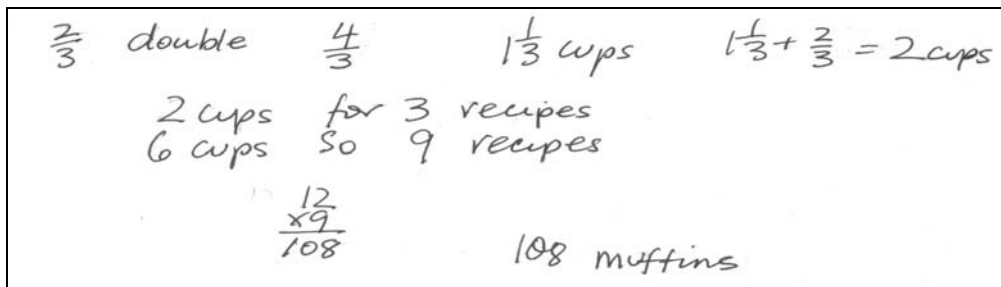 2/3 double 4/3 1 1/3 cups 1 1/3 + 2/3 = 2 cups
2 cups for 3 recipes
6 cups so 9 recipes
12
x9
108
108 muffins